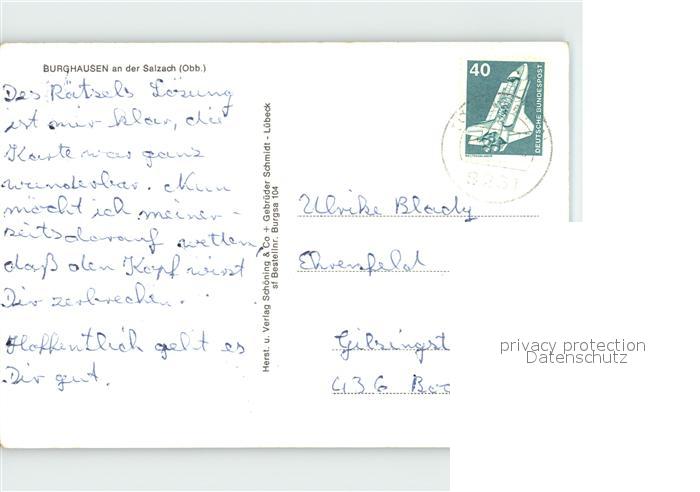 BURGHAUSEN an der Salzach (Obb.)
Des Rätsels Lösung
ist mir klar, die
Karte war ganz
wunderbar. Nun
möcht ich meiner-
seits darauf wetten,
daß den Kopf wirst
Dir zerbrechen.
Hoffentlich geht es
Dir gut.
Herst. u. Verlag Schöning & Co + Gebrüder Schmidt - Lübeck
sf Bestellnr. Burgsa 104
40
DEUTSCHE BUNDESPOST
Ulrike Blody
Ehrenfeld
Gilsingst
436 Boc
privacy protection
Datenschutz